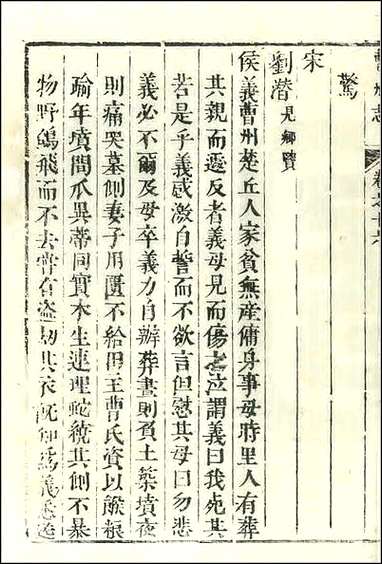 驚
宋
劉潛見鄉賢
侯義曹州楚丘人家貧無產傭身事母時里人有葬
其親而遷反者義母見而傷之泣謂義曰我死其
若是乎義感激自誓而不欲言但慰其母曰勿悲
義必不爾及母卒義力自辦葬晝則負土築墳夜
則痛哭墓側妻子用匱不給田王曹氏資以餱粮
踰年墳間瓜異蒂同實木生連理蛇繞其側不暴
物野鴿飛而不去嘗有盜刼其衣既知為義悉還